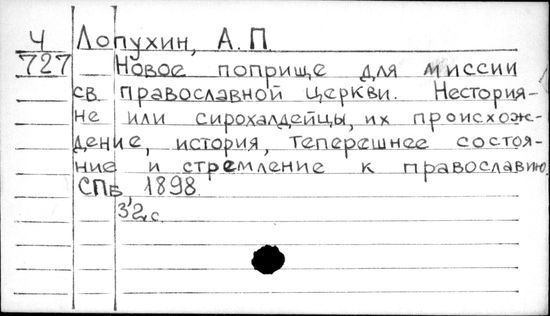 Ч Лопухин, А.П.
727 Новое поприще для миссии
св. православной церкви. Нестория-
не или сирохалдейцы, их происхож-
дение, история, теперешнее состоя-
ние и стремление к православию.
СПБ, 1898.
32 с.